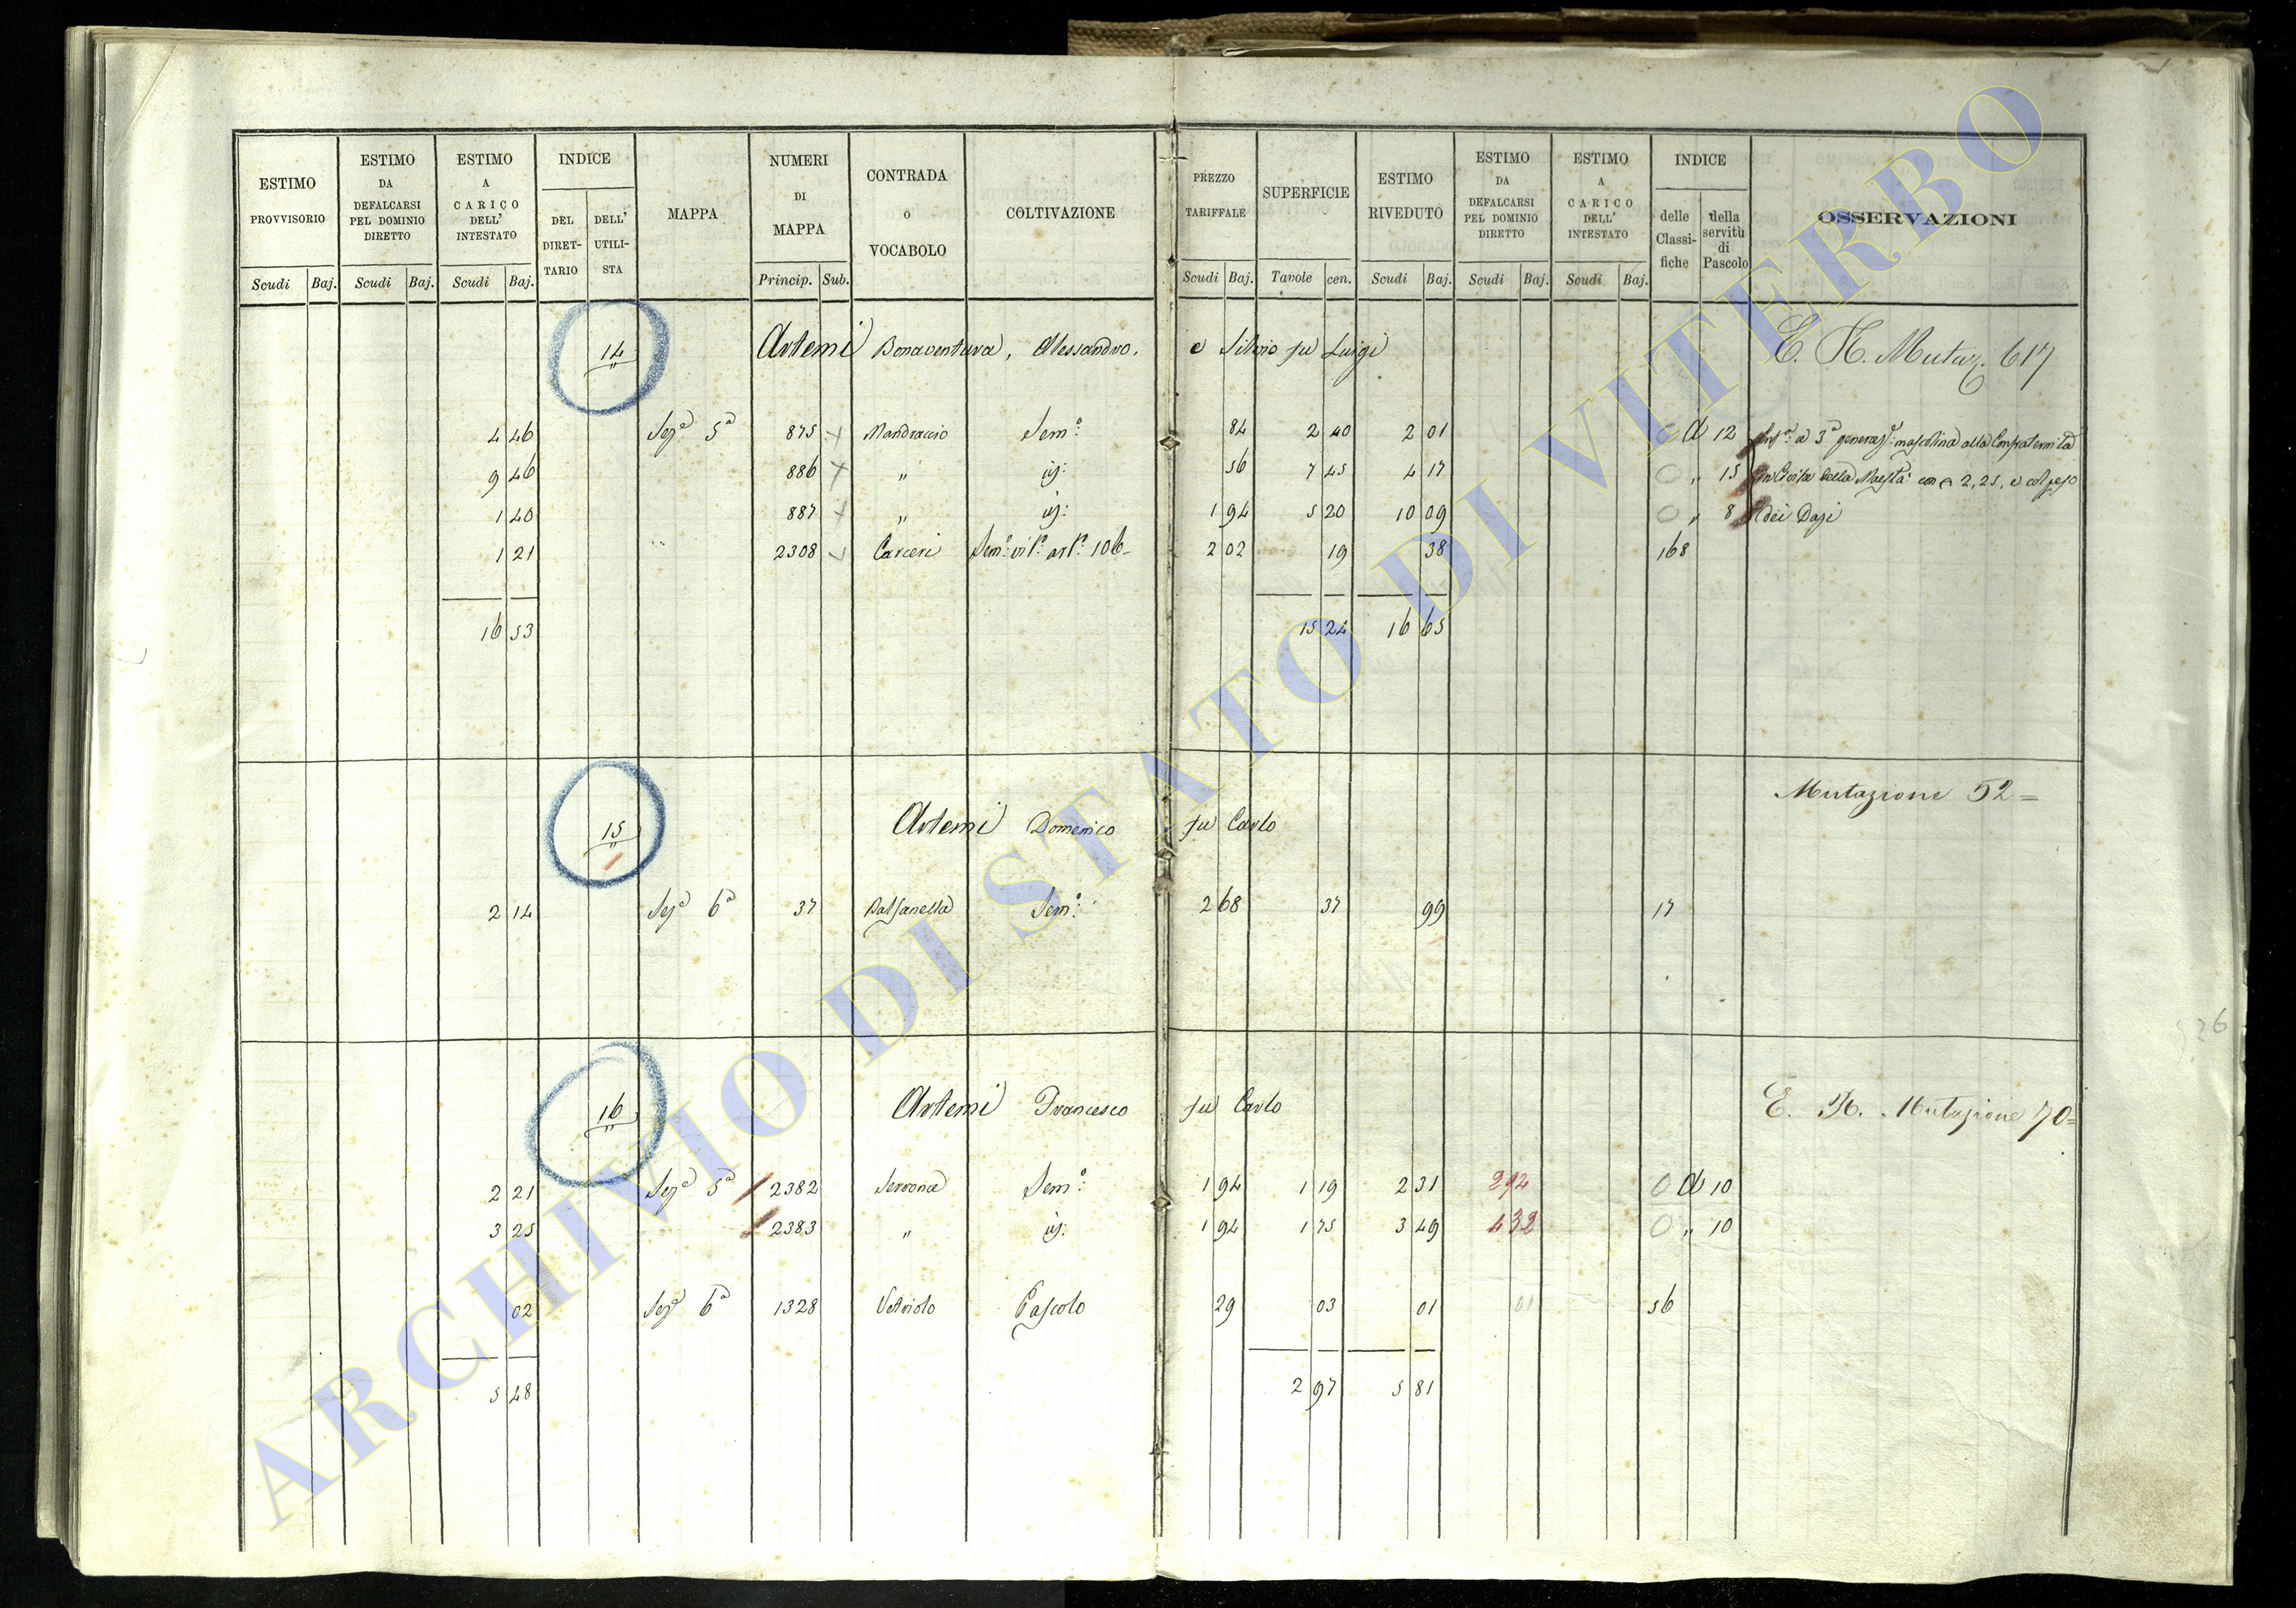 ESTIMO PROVVISORIO | ESTIMO DA DEFALCARSI PEL DOMINIO DIRETTO | ESTIMO A CARICO DELL' INTESTATO | INDICE DEL DIRETTARIO | DELL' UTILISTA | MAPPA | NUMERI DI MAPPA | CONTRADA O VOCABOLO | COLTIVAZIONE | PREZZO TARIFFALE | SUPERFICIE | ESTIMO RIVEDUTO | ESTIMO DA DEFALCARSI PEL DOMINIO DIRETTO | ESTIMO A CARICO DELL' INTESTATO | INDICE delle Classifiche | della servitù di Pascolo | OSSERVAZIONI
Scudi Baj. Scudi Baj. Scudi Baj. Princip. Sub. Scudi Baj. Tavole cen. Scudi Baj. Scudi Baj. Scudi Baj.
14 Artemi Bonaventura, Alessandro, e Silvio fu Luigi E. N. Mutaz. 617
4 46 Sez.a 5a 875 Mandraccio Sem.o 84 2 40 2 01 0 d 12 a 3a generaz.e mascolina alla Confraternita
9 46 886 " id: 56 7 45 4 17 0 " 15 della Maestà con 2,25, e col peso
1 40 887 " id: 1 94 5 20 10 09 0 " 8 dei Dazi
1 21 " 2308 Carceri Sem.o vit.o art.o 106 2 02 19 38 168
16 53 15 24 16 65
Mutazione 52 =
15 Artemi Domenico fu Carlo
2 14 Sez.a 6a 37 Balsanella Sem.o 2 68 37 99 17
16 Artemi Francesco fu Carlo E. N. Mutazione 70=
2 21 Sez.a 5a 2382 Serrone Sem.o 1 94 1 19 2 31 2 92 0 d 10
3 25 2383 " id: 1 94 1 75 3 49 4 32 0 " 10
02 Sez.a 6a 1328 Vetriolo Pascolo 29 03 01 01 56
5 48 2 97 5 81
ARCHIVIO DI STATO DI VITERBO